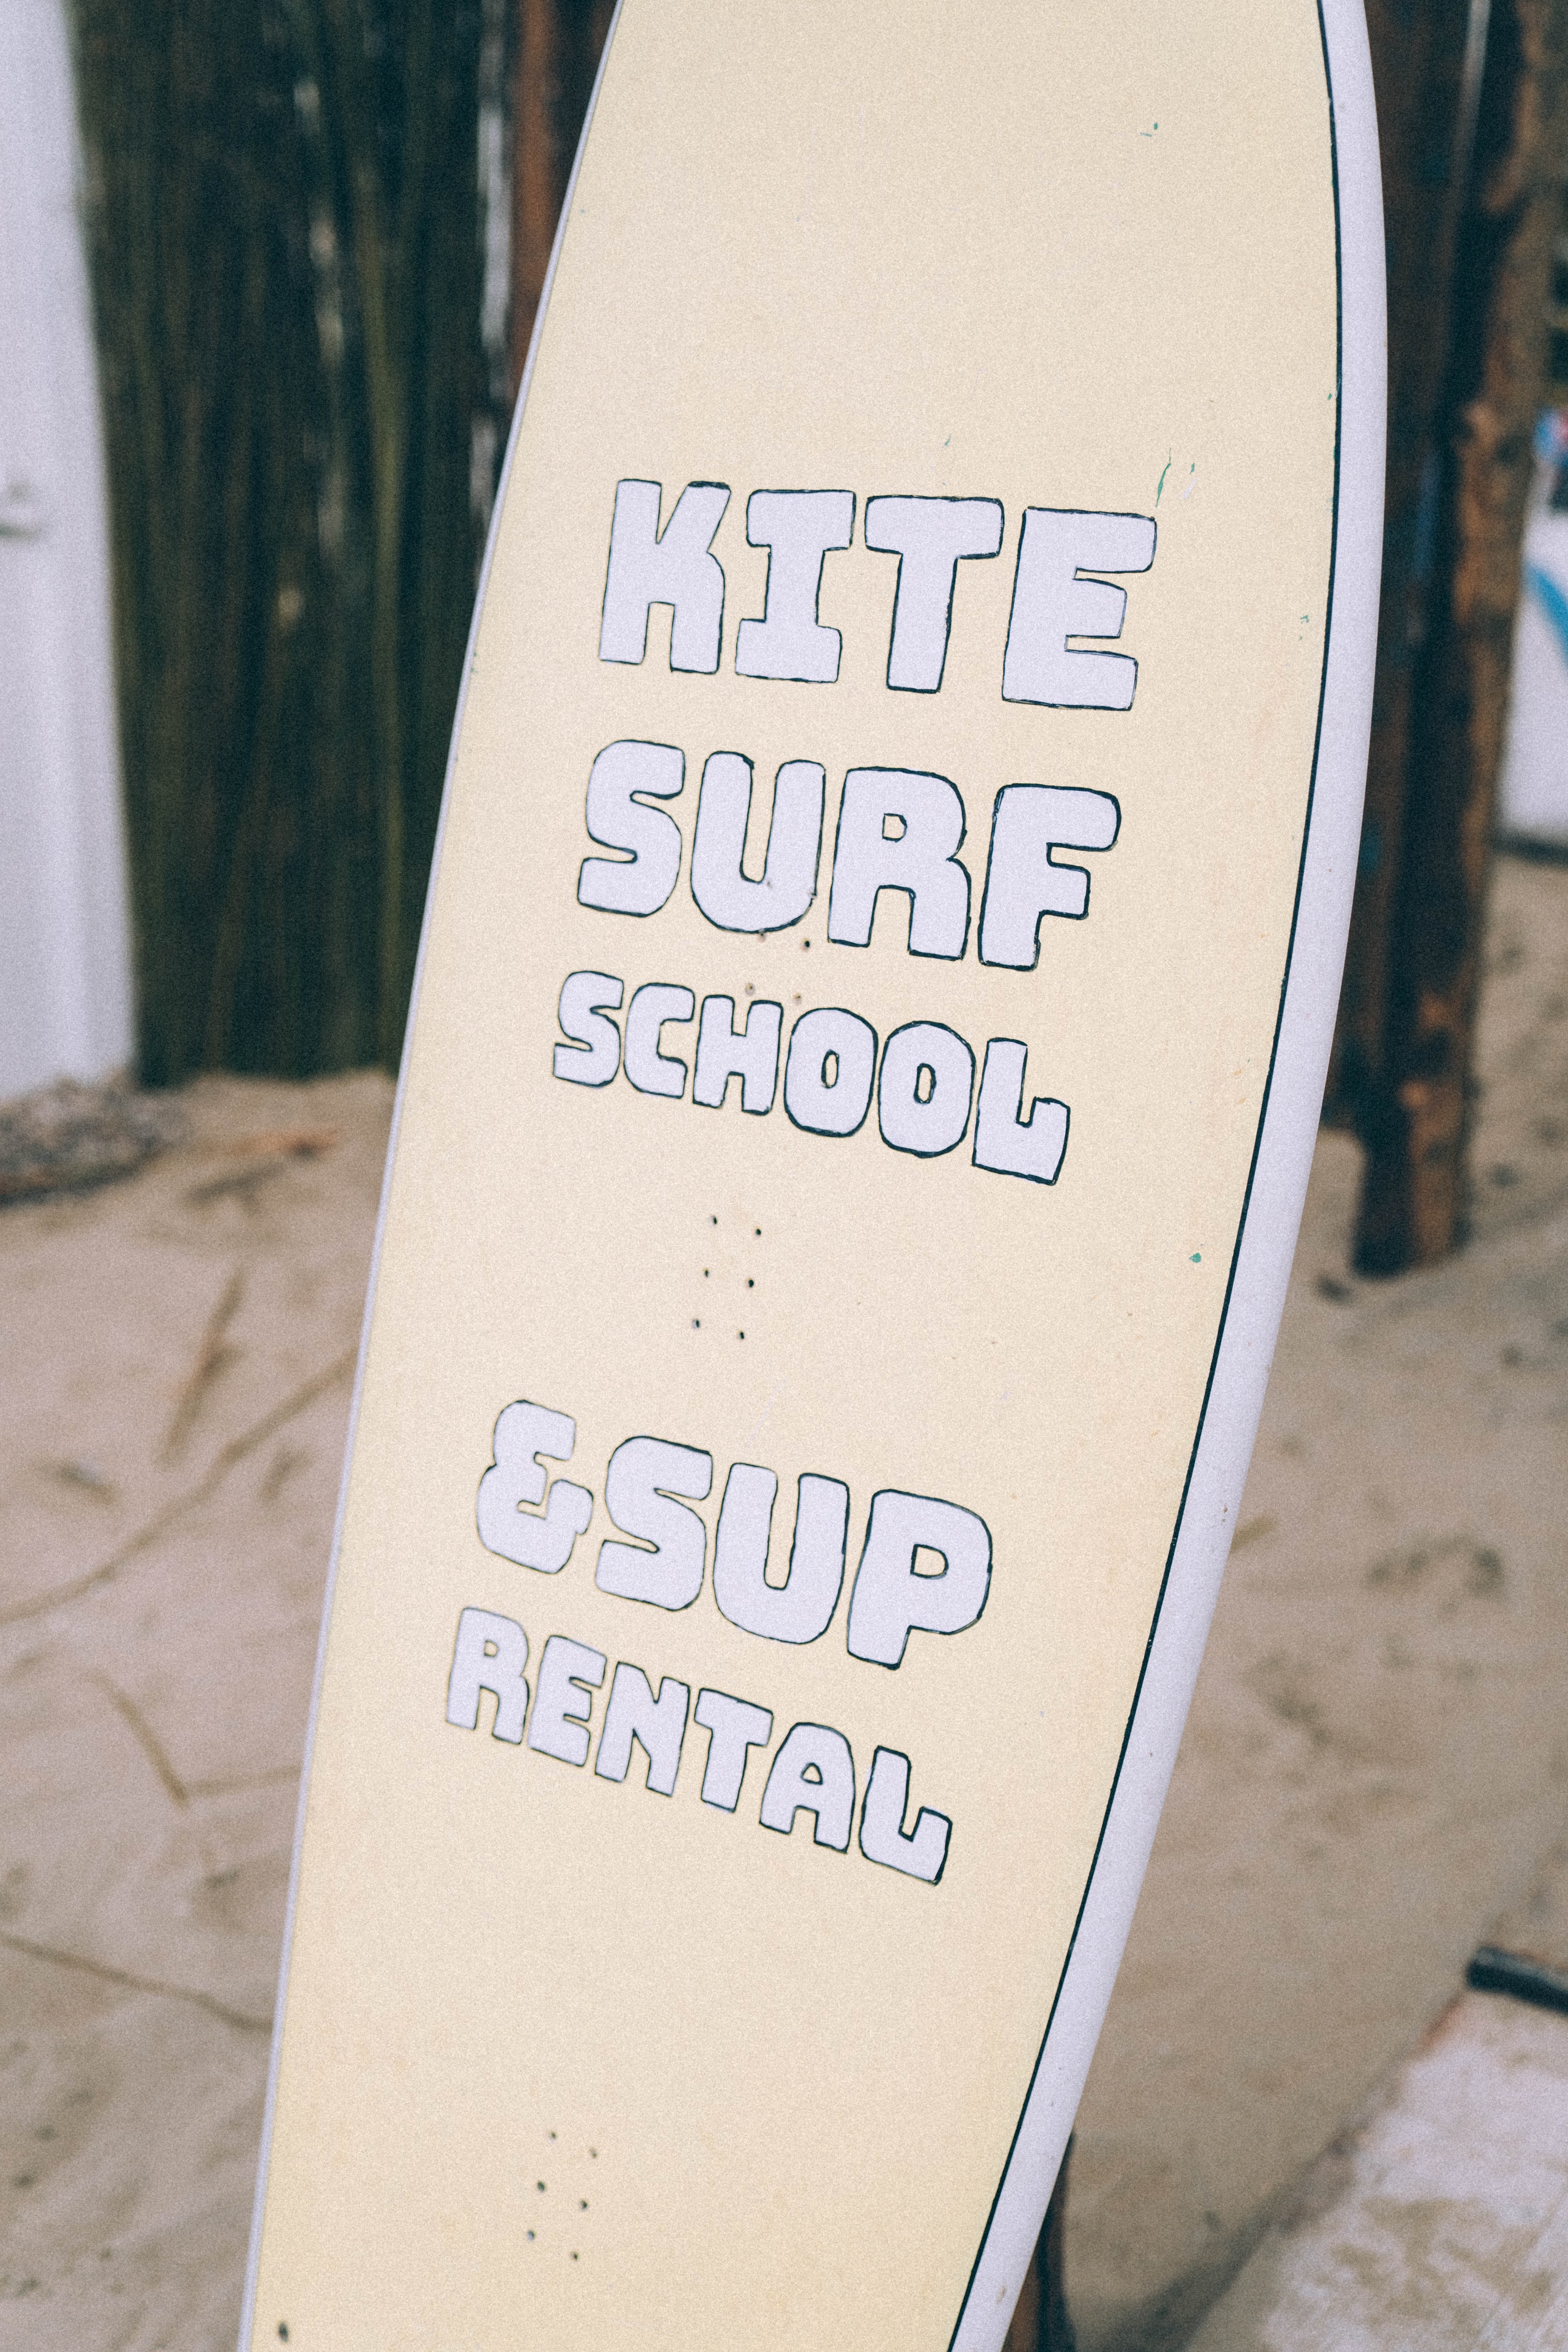 KITE
SURF
SCHOOL
&SUP
RENTAL